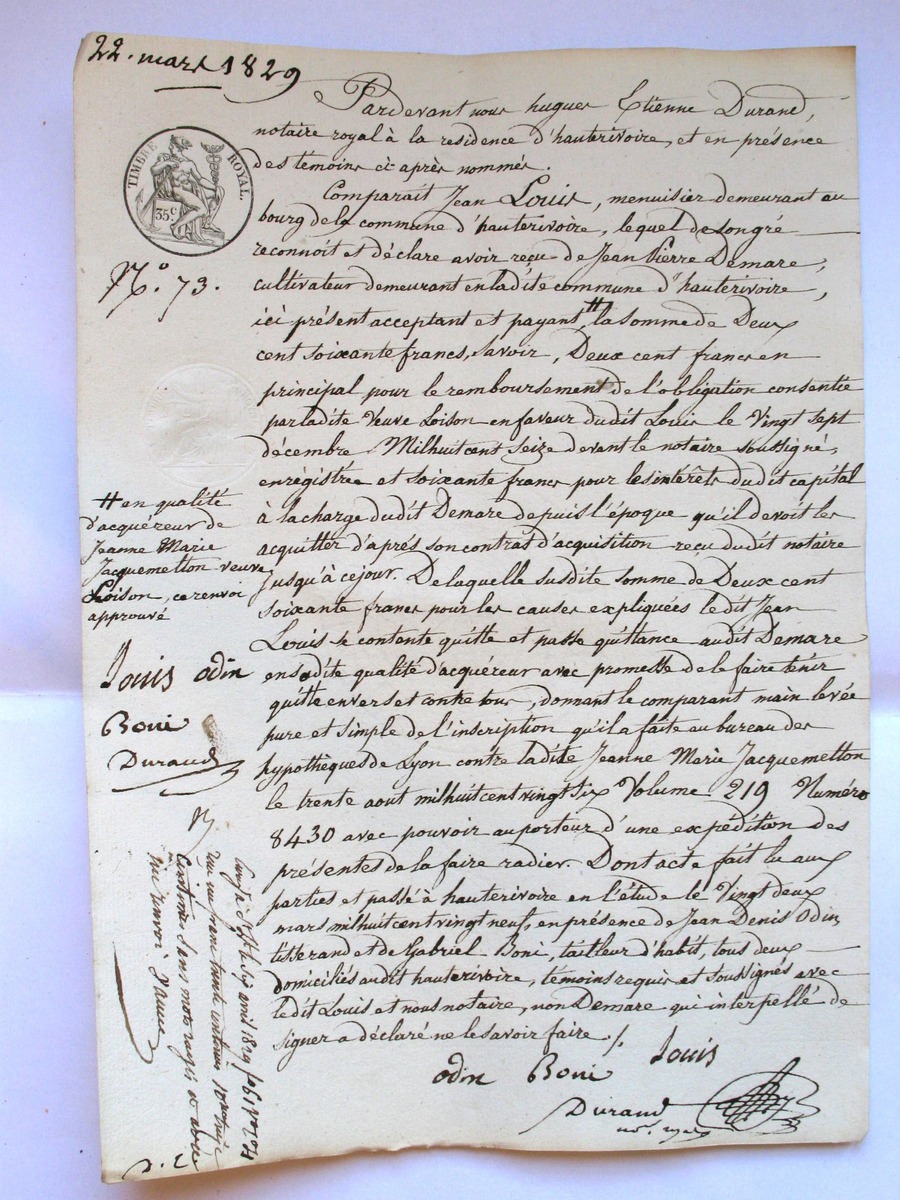 22. mars 1829
TIMBRE ROYAL.
35c.
N.° 73.
Pardevant nous hugues Etienne Durand,
notaire royal à la residence d'hauterivoire, et en présence
des témoins ci après nommés.
Comparait Jean Louis, menuisier demeurant au
bourg de la commune d'hauterivoire, lequel de son gré
reconnoit et déclare avoir reçu de Jean Pierre Demare,
cultivateur demeurant en ladite commune d'hauterivoire,
ici présent acceptant et payant, # la somme de Deux
cent soixante francs, savoir, Deux cent francs en
principal pour le remboursement de l'obligation consentie
par ladite Veuve Loison en faveur dudit Louis le Vingt sept
décembre Milhuit cent seize devant le notaire soussigné,
enregistrée et soixante francs pour les intérêts dudit capital
à la charge dudit Demare depuis l'époque qu'il devoit les
acquitter d'après son contrat d'acquisition reçu dudit notaire
jusqu'à ce jour. De laquelle susdite somme de Deux cent
soixante francs pour les causes expliquées ledit Jean
Louis se contente quitte et passe quittance audit Demare
en sadite qualité d'acquéreur avec promesse de le faire tenir
quitte envers et contre tous, donnant le comparant main levée
pure et simple de l'inscription qu'il a faite au bureau des
hypothèques de Lyon contre ladite Jeanne Marie Jacquemetton
le trente aout milhuit cent vingt six Volume 219 Numéro
8430 avec pouvoir au porteur d'une expédition des
présentes de la faire radier. Dont acte fait lu aux
parties et passé à hauterivoire en l'étude le Vingt deux
mars milhuit cent vingt neuf, en présence de Jean Denis Odin,
tisserand et de Gabriel Boni, tailleur d'habit, tous deux
domiciliés audit hauterivoire, témoins requis et soussignés avec
ledit Louis et nous notaire, non Demare qui interpellé de
signer a déclaré ne le savoir faire /.
odin Boni Louis
Durand
# en qualité
d'acquéreur de
Jeanne Marie
Jacquemetton veuve
Loison, ce renvoi
approuvé
Louis odin
Boni
Durand
avril 1829
un franc trente centimes
sans mots rayés et avec
un renvoi